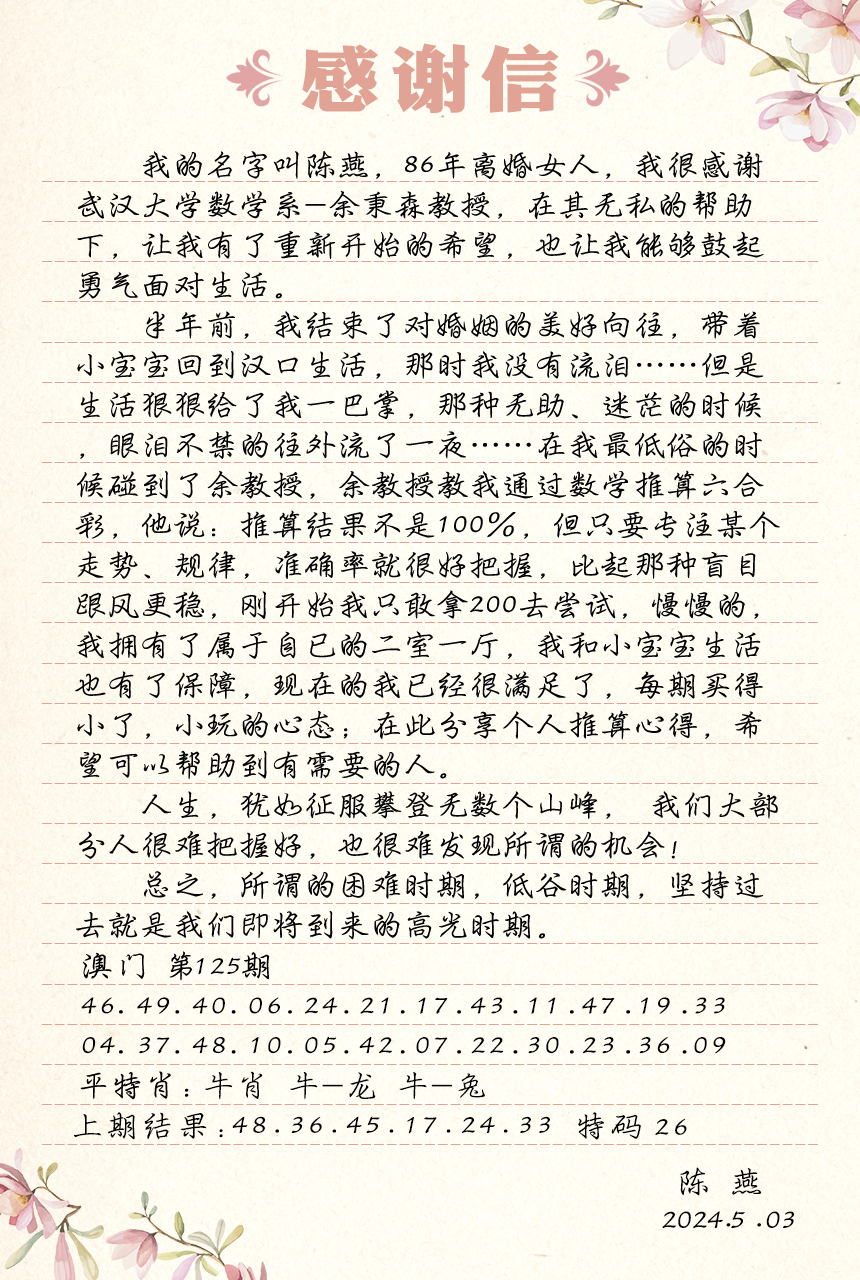 感谢信
我的名字叫陈燕，86年离婚女人，我很感谢
武汉大学数学系—余秉森教授，在其无私的帮助
下，让我有了重新开始的希望，也让我能够鼓起
勇气面对生活。
半年前，我结束了对婚姻的美好向往，带着
小宝宝回到汉口生活，那时我没有流泪……但是
生活狠狠给了我一巴掌，那种无助、迷茫的时候
，眼泪不禁的往外流了一夜……在我最低俗的时
候碰到了余教授，余教授教我通过数学推算六合
彩，他说：推算结果不是100%，但只要专注某个
走势、规律，准确率就很好把握，比起那种盲目
跟风更稳，刚开始我只敢拿200去尝试，慢慢的，
我拥有了属于自已的二室一厅，我和小宝宝生活
也有了保障，现在的我已经很满足了，每期买得
小了，小玩的心态；在此分享个人推算心得，希
望可以帮助到有需要的人。
人生，犹如征服攀登无数个山峰， 我们大部
分人很难把握好，也很难发现所谓的机会！
总之，所谓的困难时期，低谷时期，坚持过
去就是我们即将到来的高光时期。
澳门 第125期
46.49.40.06.24.21.17.43.11.47.19.33
04.37.48.10.05.42.07.22.30.23.36.09
平特肖：牛肖 牛—龙 牛—兔
上期结果：48.36.45.17.24.33 特码 26
陈 燕
2024.5 .03